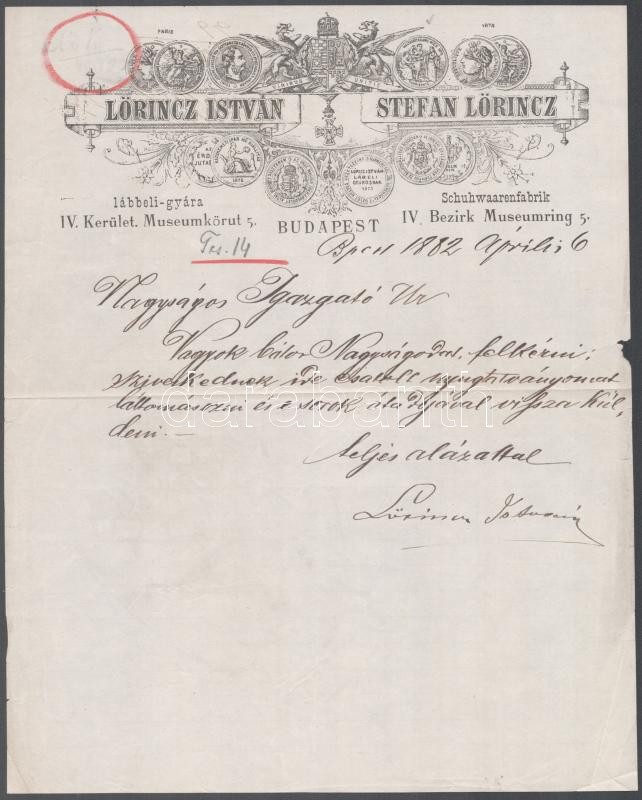 PARIS
1873
LÖRINCZ ISTVÁN
STEFAN LÖRINCZ
lábbeli-gyára
Schuhwaarenfabrik
IV. Kerület. Museumkörut 5.
BUDAPEST
IV. Bezirk Museumring 5.
14
Bpest 1882 Április 6
Nagyságos Igazgató Ur
Vagyok bátor Nagyságodat, felkérni;
sziveskednek ide csatolt nyugtatványomat
láttamozni és e sorok átadójával vissza kül-
deni. —
teljes alázattal
Lörincz István
darabanth